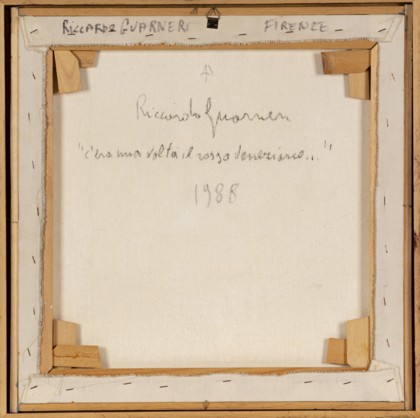 RICCARDO GUARNERI FIRENZE
Riccardo Guarneri
"c'era una volta il rosso veneziano..."
1988